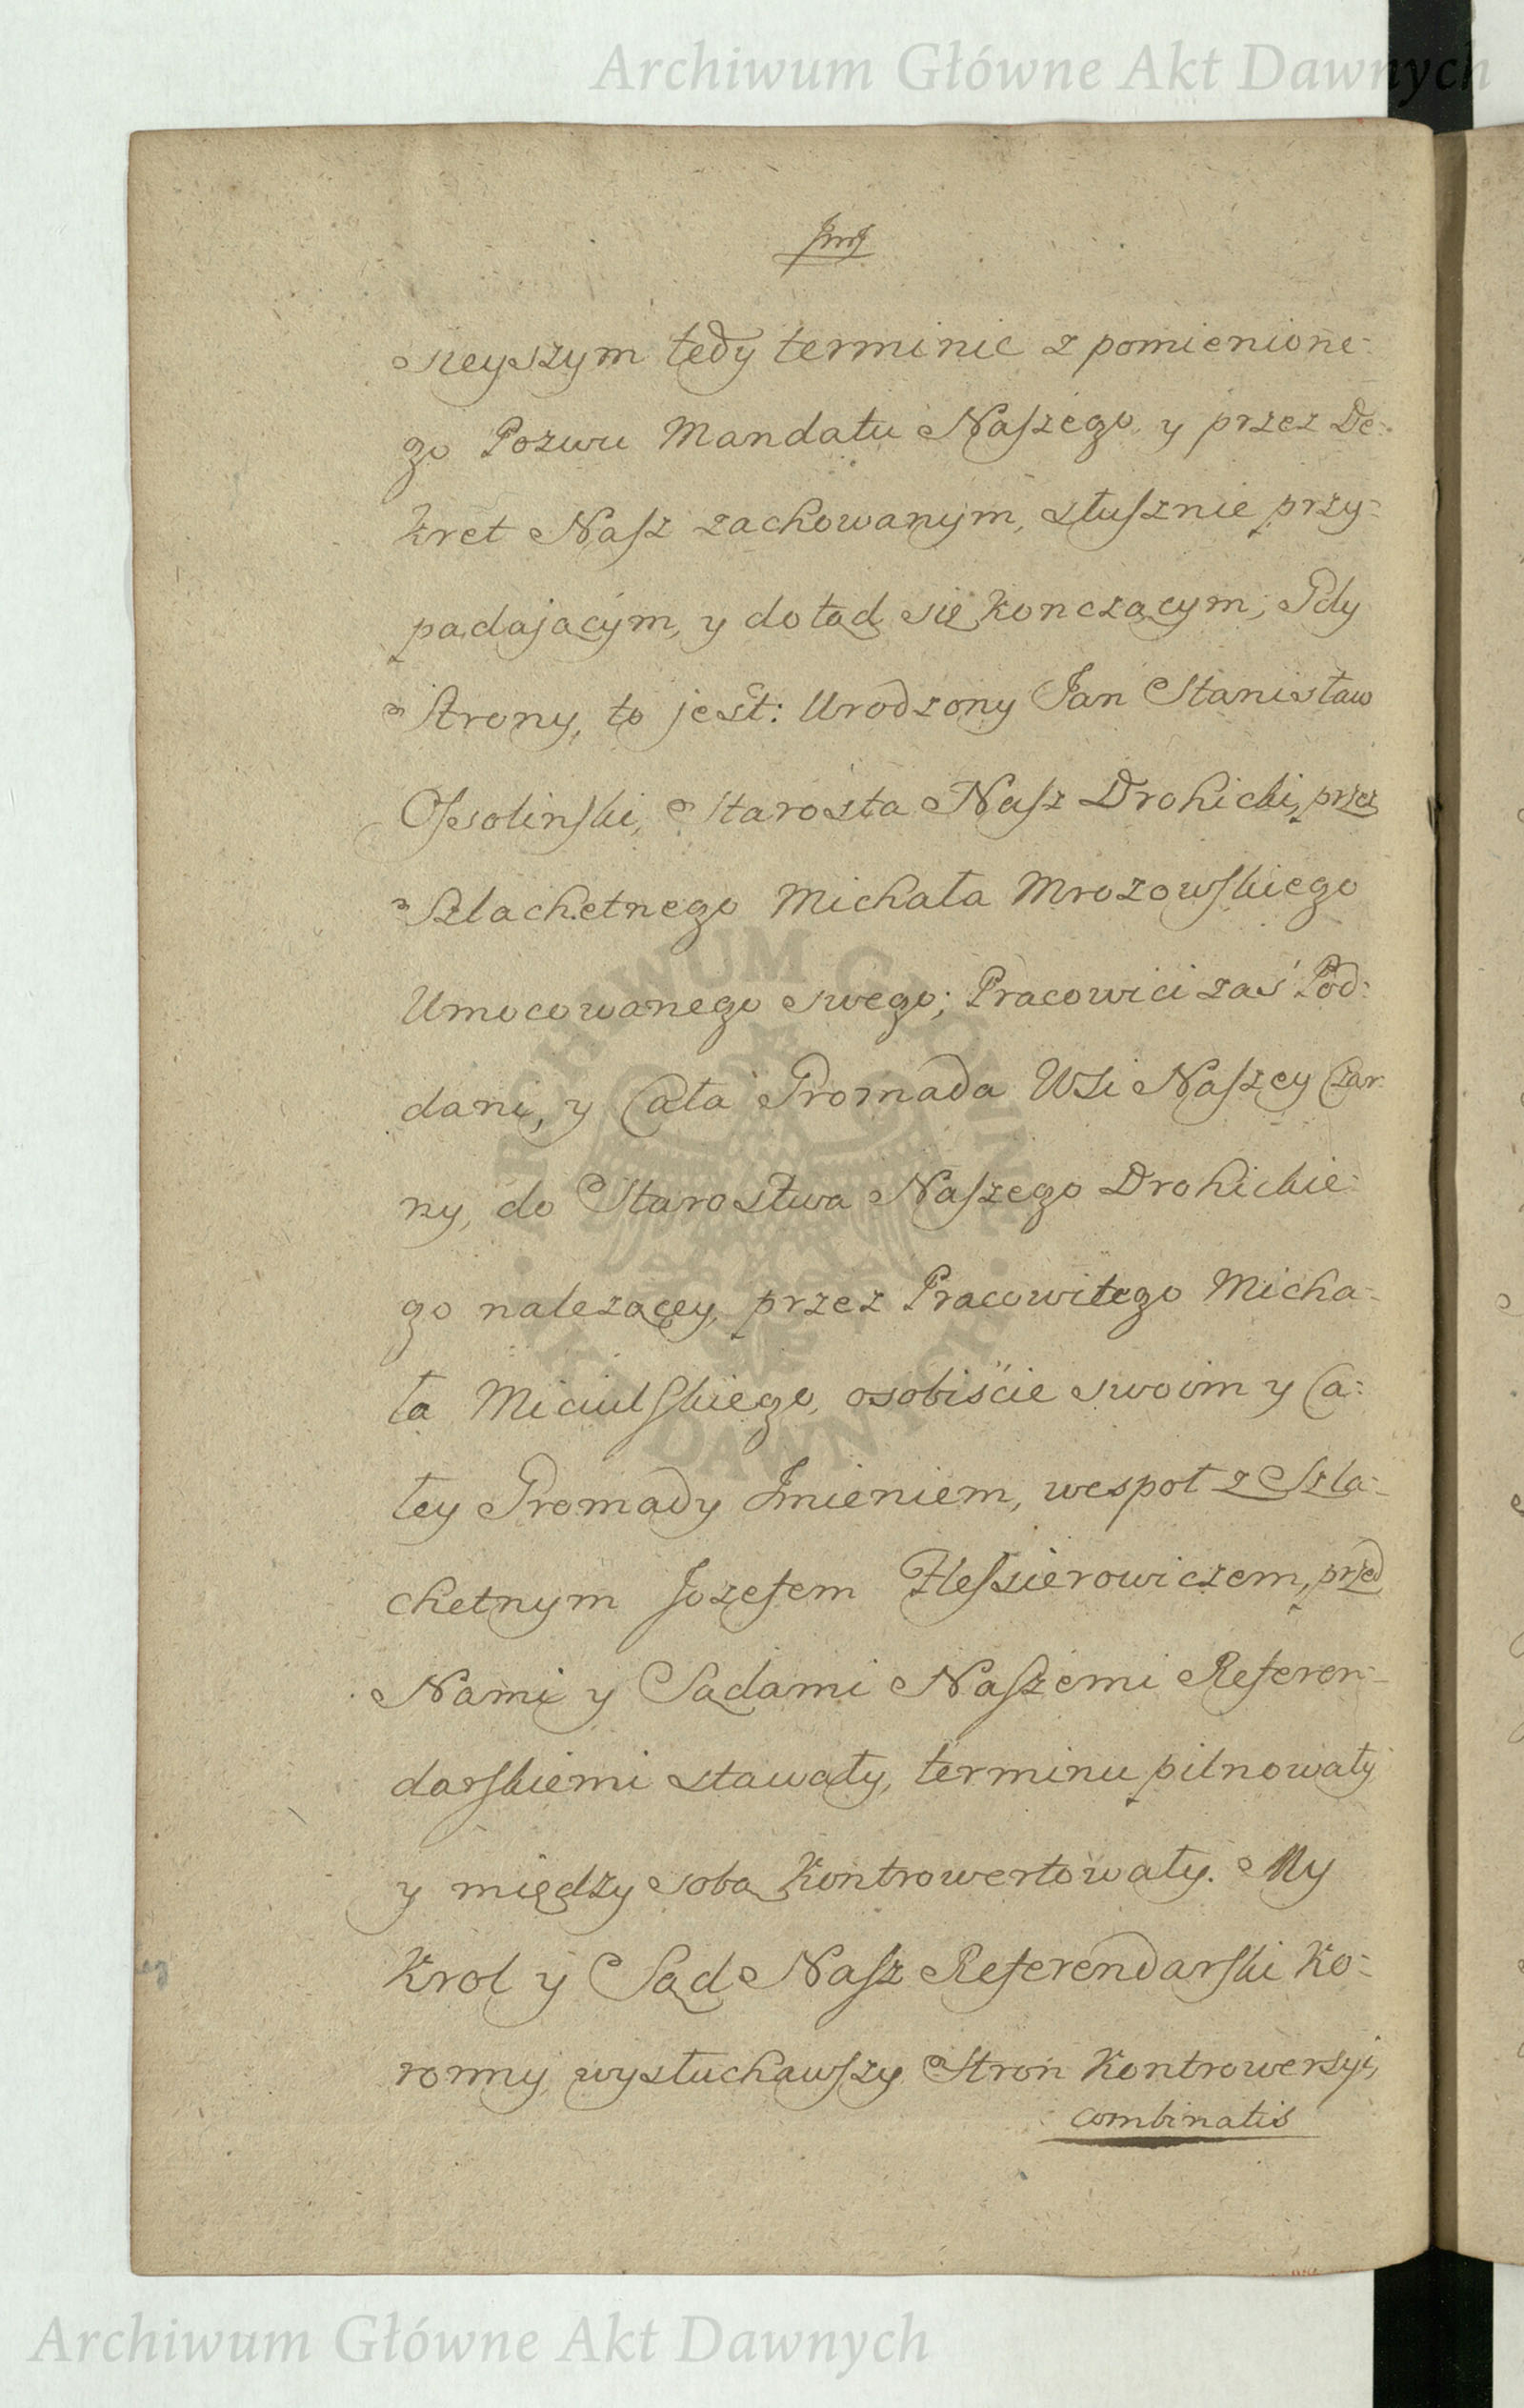 Archiwum Główne Akt Dawnych
neyszym tedy terminie z pomienione:
go Pozwu Mandatu Naszego y przez De:
kret Nasz zachowanym, słusznie przy:
padaiącym, y dotąd się kończącym, Gdy
Strony, to jest: Urodzony Jan Stanisław
Ossolinski, Starosta Nasz Drohicki, przez
Szlachetnego Michała Mrozowskiego
Umocowanego swego; Pracowici zaś Pod:
dani, y Cała Gromada Wsi Naszey Czar:
ny, do Starostwa Naszego Drohickie:
go nalezącey, przez Pracowitego Micha:
ła Miciulskiego, osobiście swoim y Ca:
łey Gromady Jmieniem, wespoł z Szla:
chetnym Jozefem Hessierowiczem, przed
Nami y Sądami Naszemi Referen:
darskiemi stawały, terminu pilnowały
y między sobą Kontrowertowały. My
Krol y Sąd Nasz Referendarski Ko:
ronny wysłuchawszy Stron Kontrowersyi,
combinatis
ARCHIWUM GŁÓWNE AKT DAWNYCH
Archiwum Główne Akt Dawnych